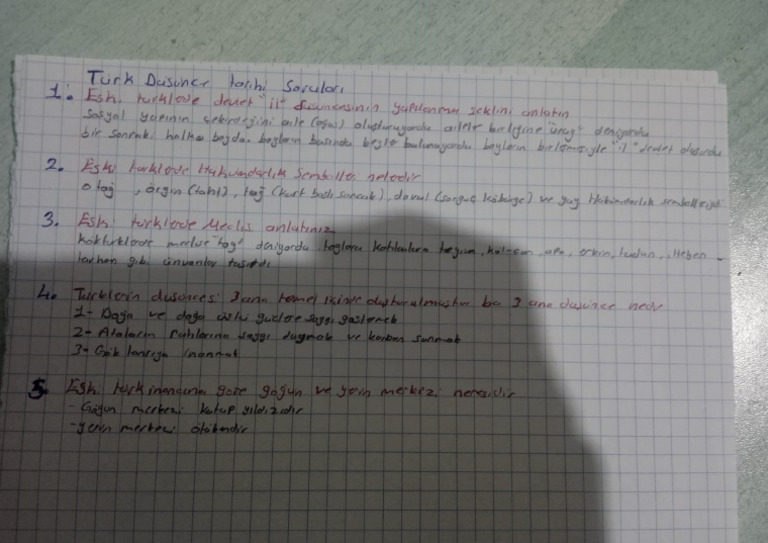 Türk Düşünce tarihi Soruları
1. Eski türklerde devlet "il" düzeninin yapılanma şeklini anlatın
Sosyal yapının çekirdeğini aile (oguş) oluşturuyordu aileler birliğine "urug" deniyordu
bir sonraki halka boydu. boyların başında beyler bulunuyordu boyların birleşmesiyle "il" devlet oluşurdu
2. Eski türklerde Hükümdarlık Sembolleri nelerdir
otağ, örgin (taht), tuğ (kurt başlı sancak), davul ve yay Hükümdarlık sembolleriydi
3. Eski türklerde Meclis anlatınız
köktürklerde meclise "toy" deniyordu. toylara katılanlara apa, erkin, tudun,
tarhan gibi ünvanlar taşırdı
4. Türklerin düşüncesi 3 ana temel üzerine oluşturulmuştur bu 3 ana düşünce nedir
1- Doğa ve doğa üstü güçlere saygı göstermek
2- Ataların ruhlarına saygı duymak ve kurban sunmak
3- Gök tanrıya inanmak
5. Eski türk inancına göre göğün ve yerin merkezi neresidir
- Göğün merkezi kutup yıldızıdır
- yerin merkezi ötükendir